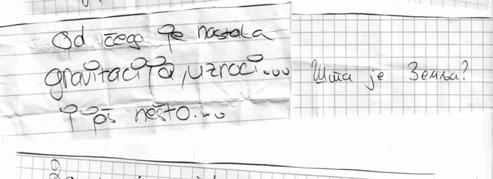 Od čega je nastala
gravitacija, uzroci...
i još nešto...
Шта је Земља?